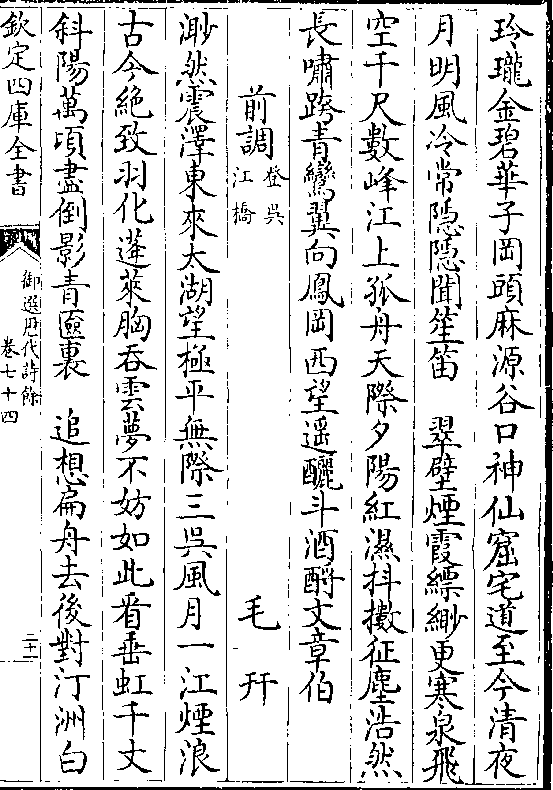 玲瓏金碧華子岡頭麻源谷口神仙窟宅道至今清夜
月明風冷常隱隱聞笙笛　翠壁煙霞縹緲更寒泉飛
空千尺數峰江上孤舟天際夕陽紅濕抖擻征塵浩然
長嘯跨青鸞翼向鳳岡西望遥釃斗酒酹文章伯
前調登吳江橋　毛幵
渺然震澤東來太湖望極平無際三吳風月一江煙浪
古今絶致羽化蓬萊胸吞雲夢不妨如此看垂虹千丈
斜陽萬頃盡倒影青匳裏　追想扁舟去後對汀洲白
欽定四庫全書
御選歷代詩餘
卷七十四
二十一